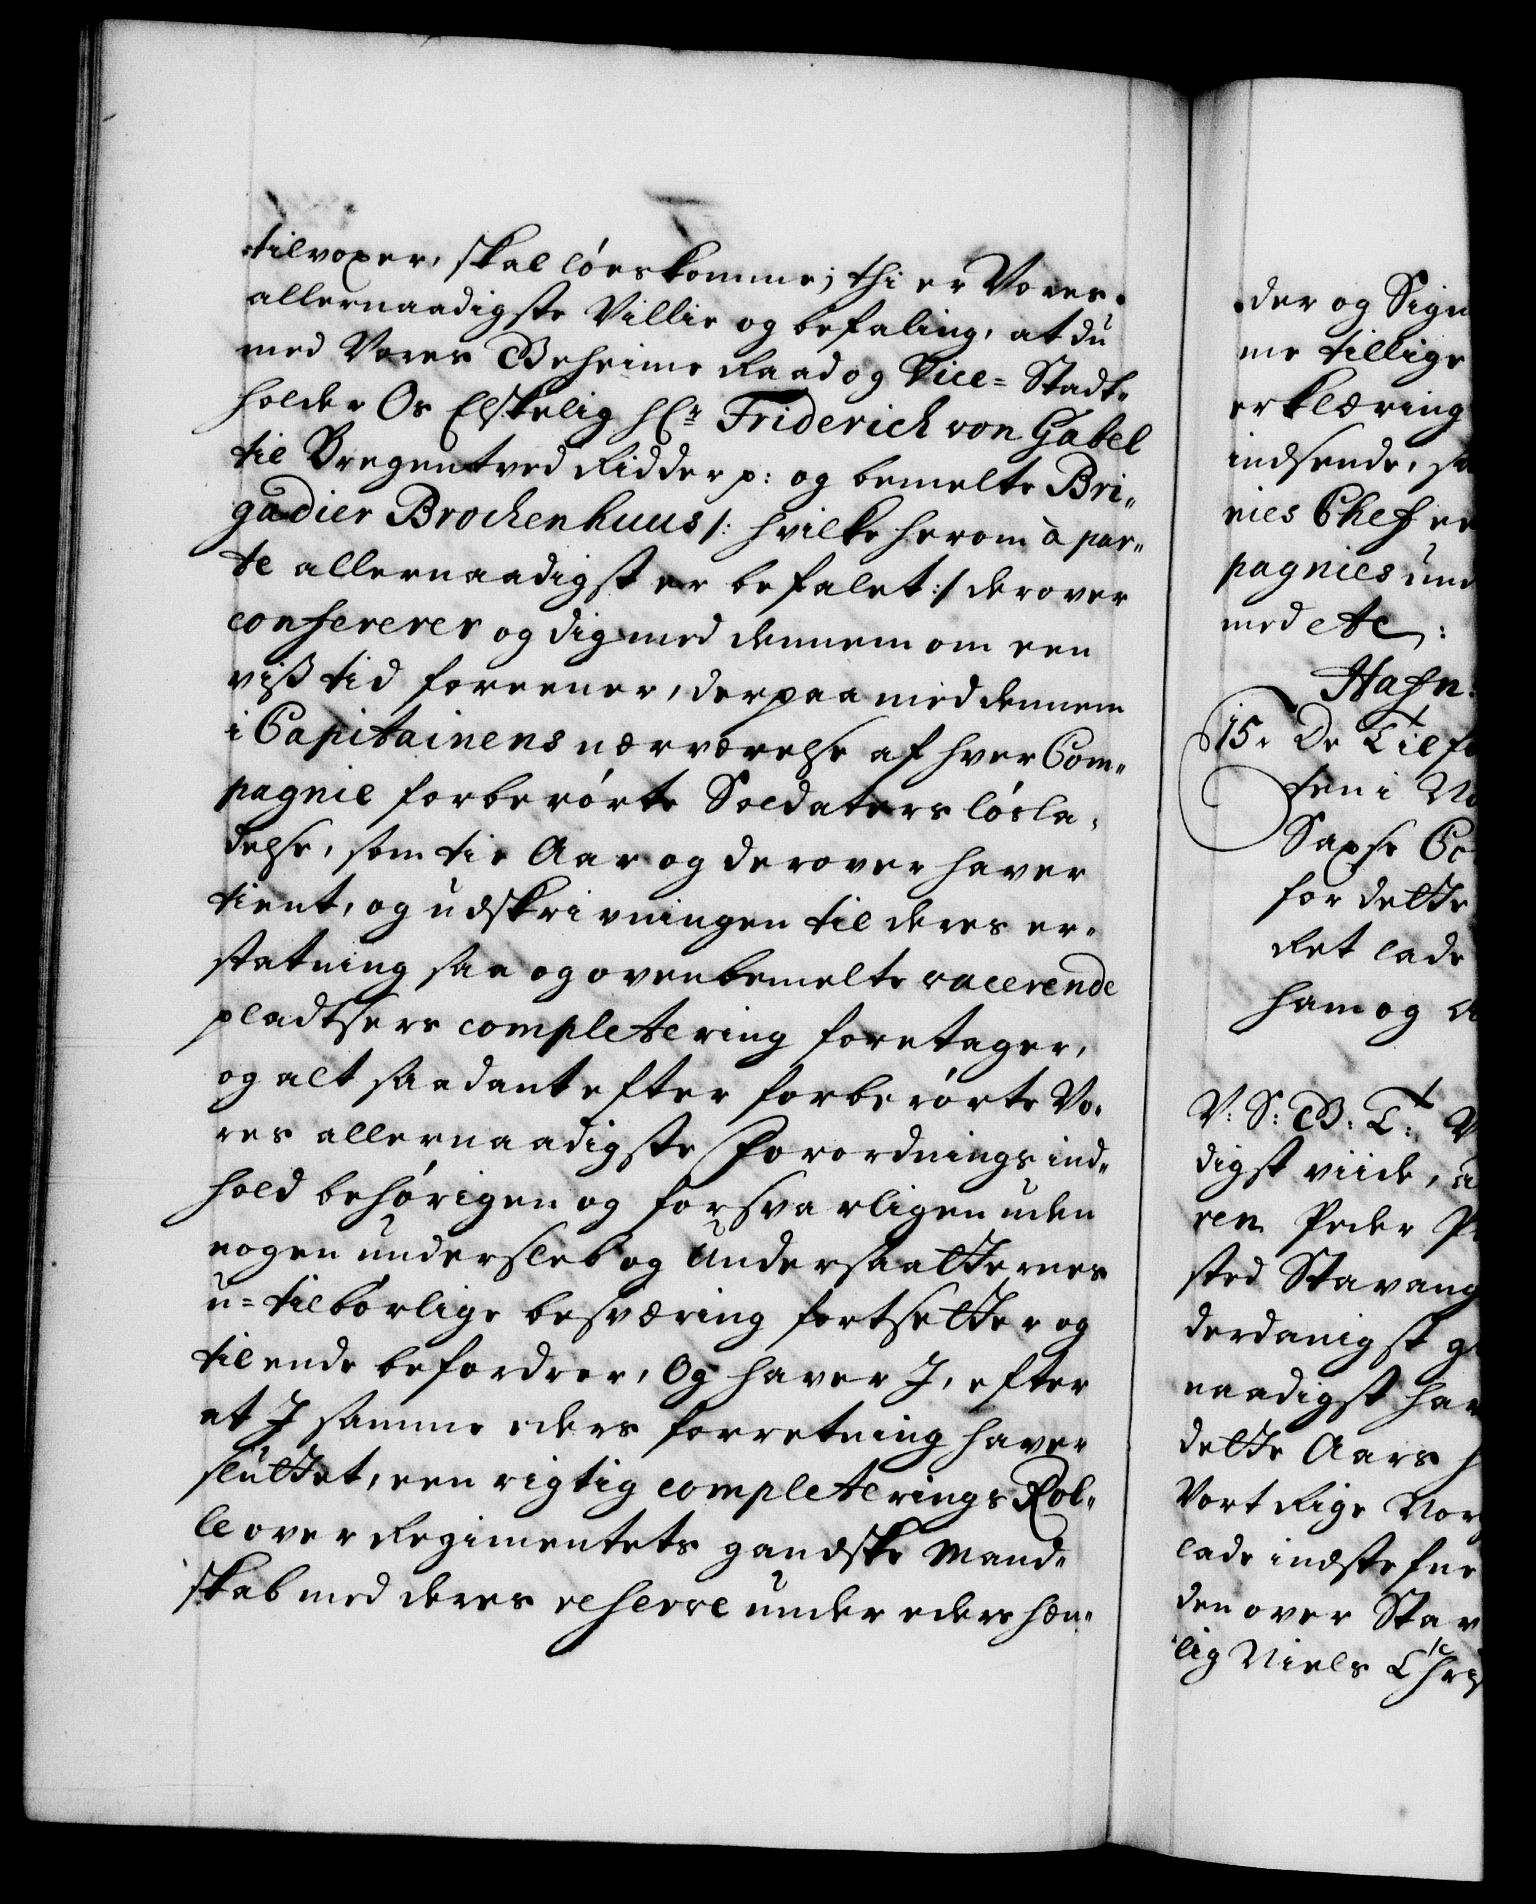 tilvoxer, skal löeskomme; thi er Vores
allernaadigste Villie og befaling, at du
med Vores Geheime Raad og Vice=Stadt-
holder Os Elskelig Hr. Friderich von Gabel
til Bregentved Ridder p: og bemelte Bri-
gadier Brockenhuus /: hvilke herom à par-
te allernaadigst er befalet :/ derover
confererer og dig med dennem om een
viß tid foreener, derpaa med dennem
i Capitainens nærværelse af hver Com-
pagnie forberörte Soldaters lösla-
delse, som tie Aar og derover haver
tient, og udskrivningen til deres er-
statning saa og ovenbemelte vacerende
pladtsers completering foretager,
og alt saadant efter forberörte Vo-
res allernaadigste Forordnings ind-
hold behörigen og forsvarligen uden
nogen undersleb og Undersaatternes
u=tilbörlige besværing fortsetter og
til ende befordrer, Og haver I, efter
at I samme eders forretning haver
sluttet, een rigtig completerings Rol-
le over Regimentets gandske Mand-
skab med deres reserve under eders hæn-
der og Sign
me tillige
erklæring
indsende, sa
nies Chef
pagnies und
med etc:
Hafn:
15. De Tilfo
ten i No
Saxse
for dette
Ret lade
ham og
V: S: G: T: V
digst viide, a
ren Peder
sted Stavang
derdanigst
naadigst hav
dette Aars
Vort Rige Nor
lade indstefne
den over Stav
lig Niels Chris